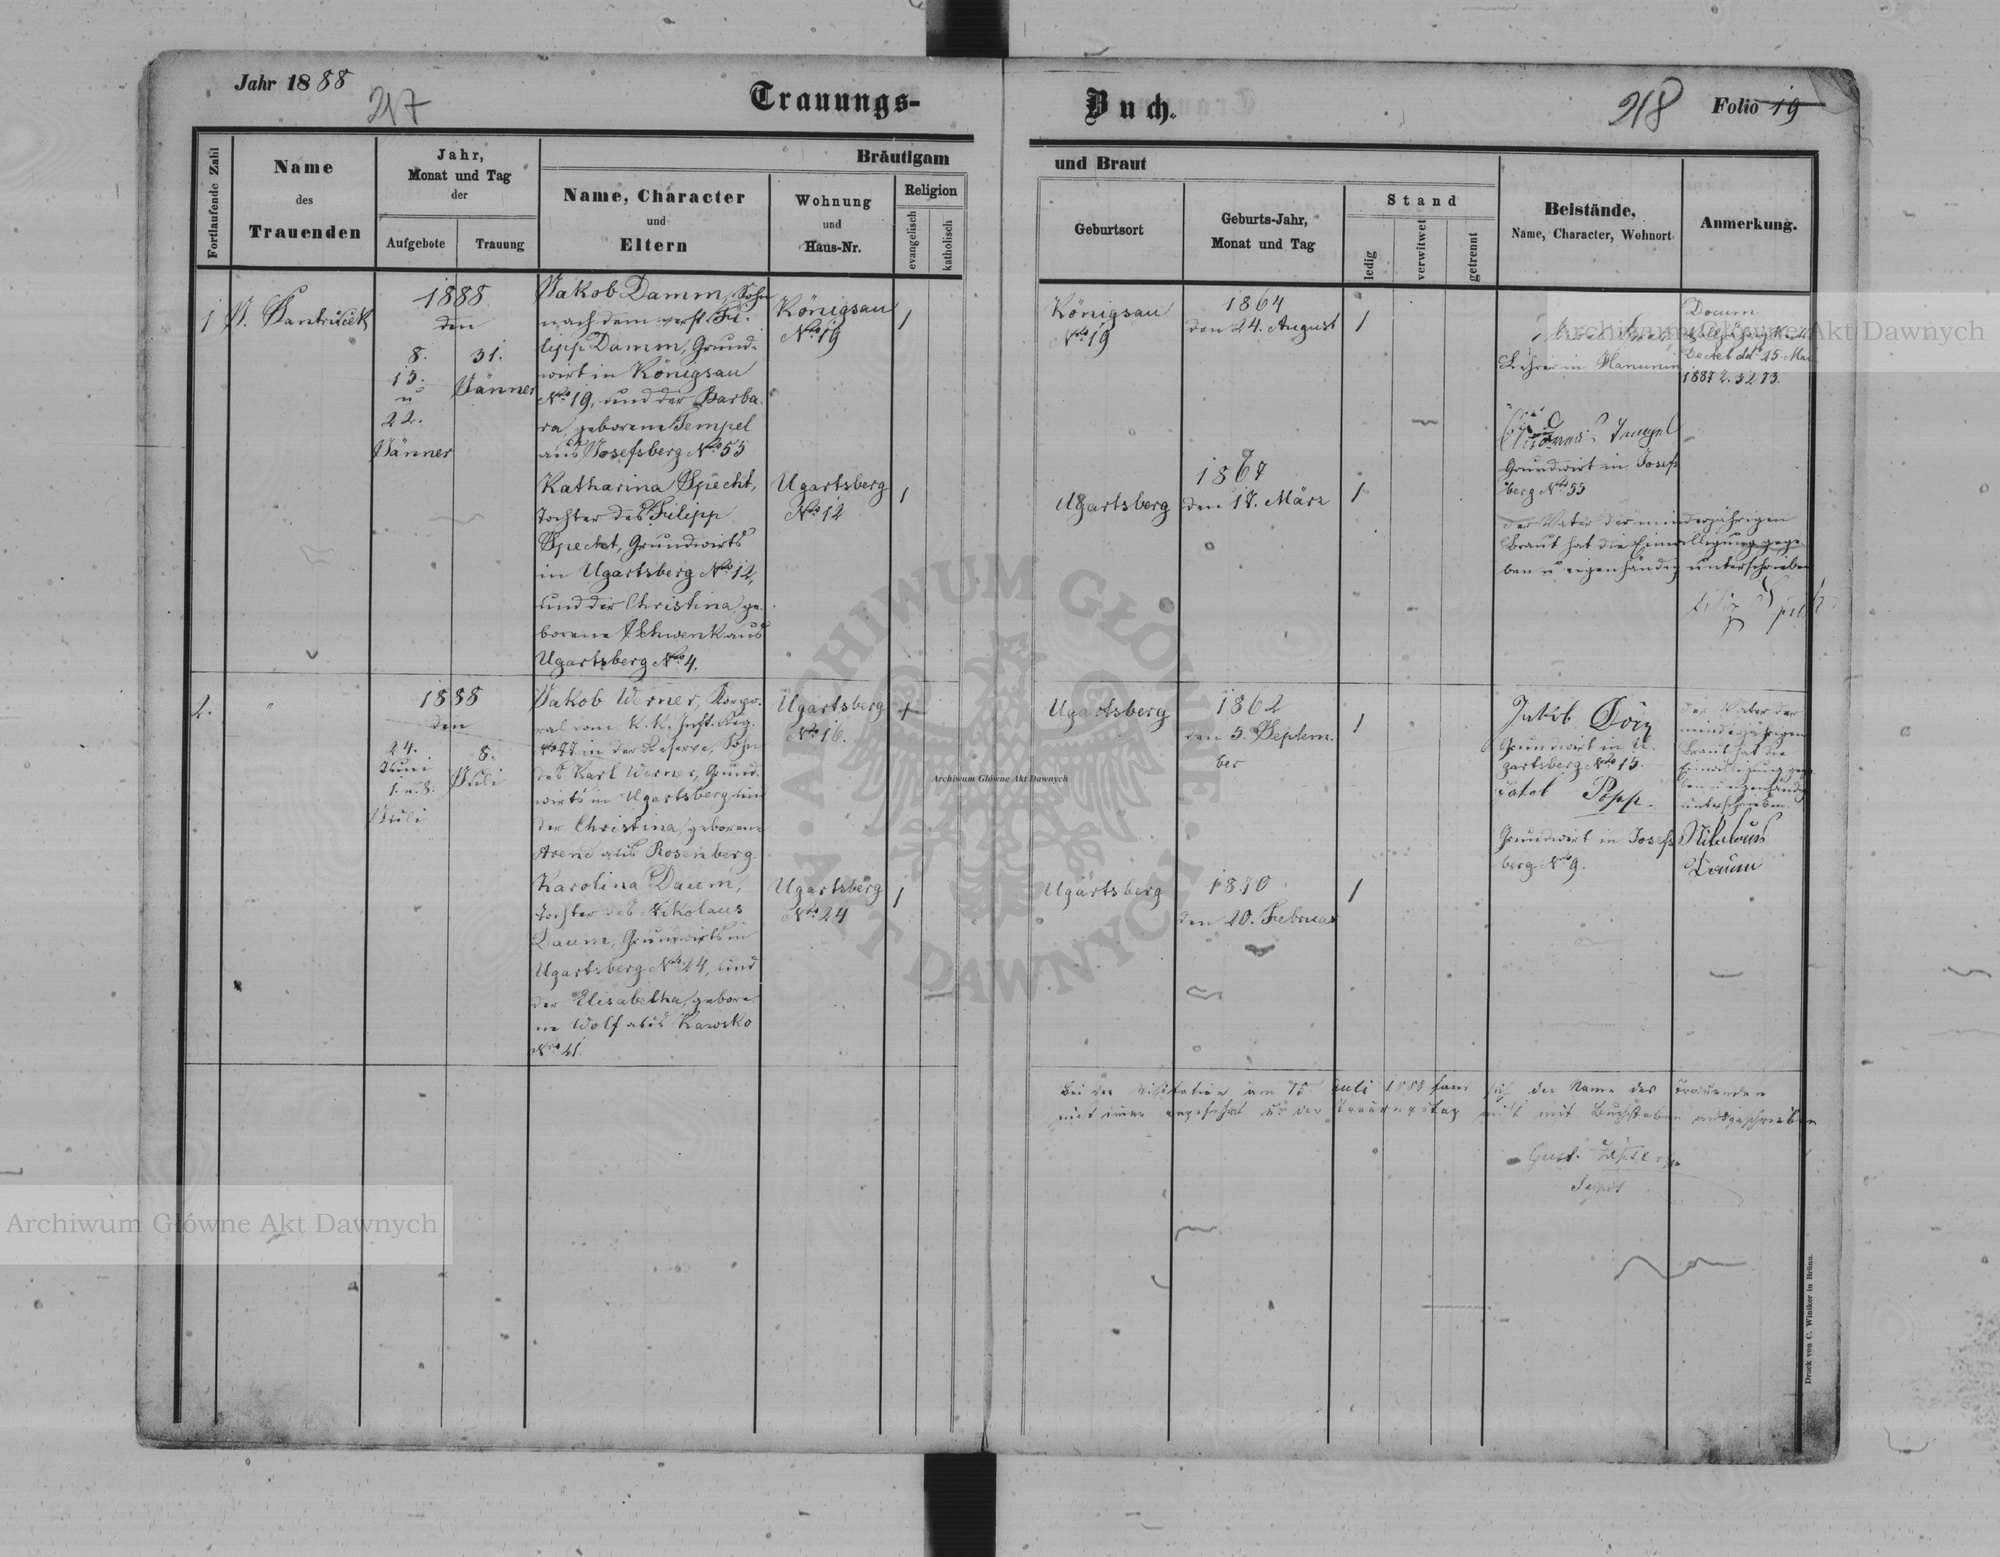 Jahr 1888
217
Trauungs-
Buch.
218
Folio 19
Fortlaufende Zahl
Name
des
Trauenden
Jahr,
Monat und Tag
der
Aufgebote
Trauung
Bräutigam
Name, Character
und
Eltern
Wohnung
und
Haus-Nr.
Religion
evangelisch
katholisch
und Braut
Geburtsort
Geburts-Jahr,
Monat und Tag
Stand
ledig
verwitwet
getrennt
Beistände,
Name, Character, Wohnort
Anmerkung.
1
1888
den
8.
15.
u
22.
Jänner
31.
Jänner
Jakob Damm, Sohn
nach dem verst. Fi-
lipp Damm, Grund-
wirt in Königsau
No 19, und der Barba-
ra, geborene Tempel
aus Josefsberg No 55
Königsau
No 19
1
Königsau
No 19
1864
den 24. August
1
Lehrer in Hanunin
Docum.
1887 Z. 3273.
Grundwirt in Josefs
berg No 55
Katharina Specht,
Tochter des Filipp
Specht, Grundwirts
in Ugartsberg No 12,
und der Christina, ge-
borene Schwenk aus
Ugartsberg No 4.
Ugartsberg
No 12
1
Ugartsberg
1867
den 17. März
1
der Vater der minderjährigen
Braut hat die Einwilligung gege-
ben u eigenhändig unterschrieben
2.
"
1888
den
24.
Juni
1. u. 8.
Juli
8.
Juli
Jakob Werner, Korpo-
ral vom K. K. Inft. Reg.
No 77 in der Reserve, Sohn
des Karl Werner, Grund-
wirts in Ugartsberg und
der Christina, geborene
Arend aus Rosenberg.
Ugartsberg
No 16.
1
Ugartsberg
1862
den 5. Septem-
ber
1
Jakob
Grundwirt in U-
gartsberg No 15.
Jakob Popp.
Grundwirt in Josefs
berg No 9.
der Vater der
minderjährigen
Braut hat die
Einwilligung gege-
ben u eigenhändig
unterschrieben.
Nikolaus
Daum
Karolina Daum,
Tochter des Nikolaus
Daum, Grundwirts in
Ugartsberg No 24, und
der Elisabetha, gebore-
ne Wolf aus Rawsko
No 41.
Ugartsberg
No 24
1
Ugartsberg
1870
den 20. Februar
1
Bei der Visitation am 15. Juli 1888 fand sich der Name des Trauenden
nicht immer angeführt und der Trauungstag nicht mit Buchstaben ausgeschrieben
Druck von C. Winiker in Brünn.
Archiwum Główne Akt Dawnych
Archiwum Główne Akt Dawnych
Archiwum Główne Akt Dawnych
ARCHIWUM GŁÓWNE
AKT DAWNYCH